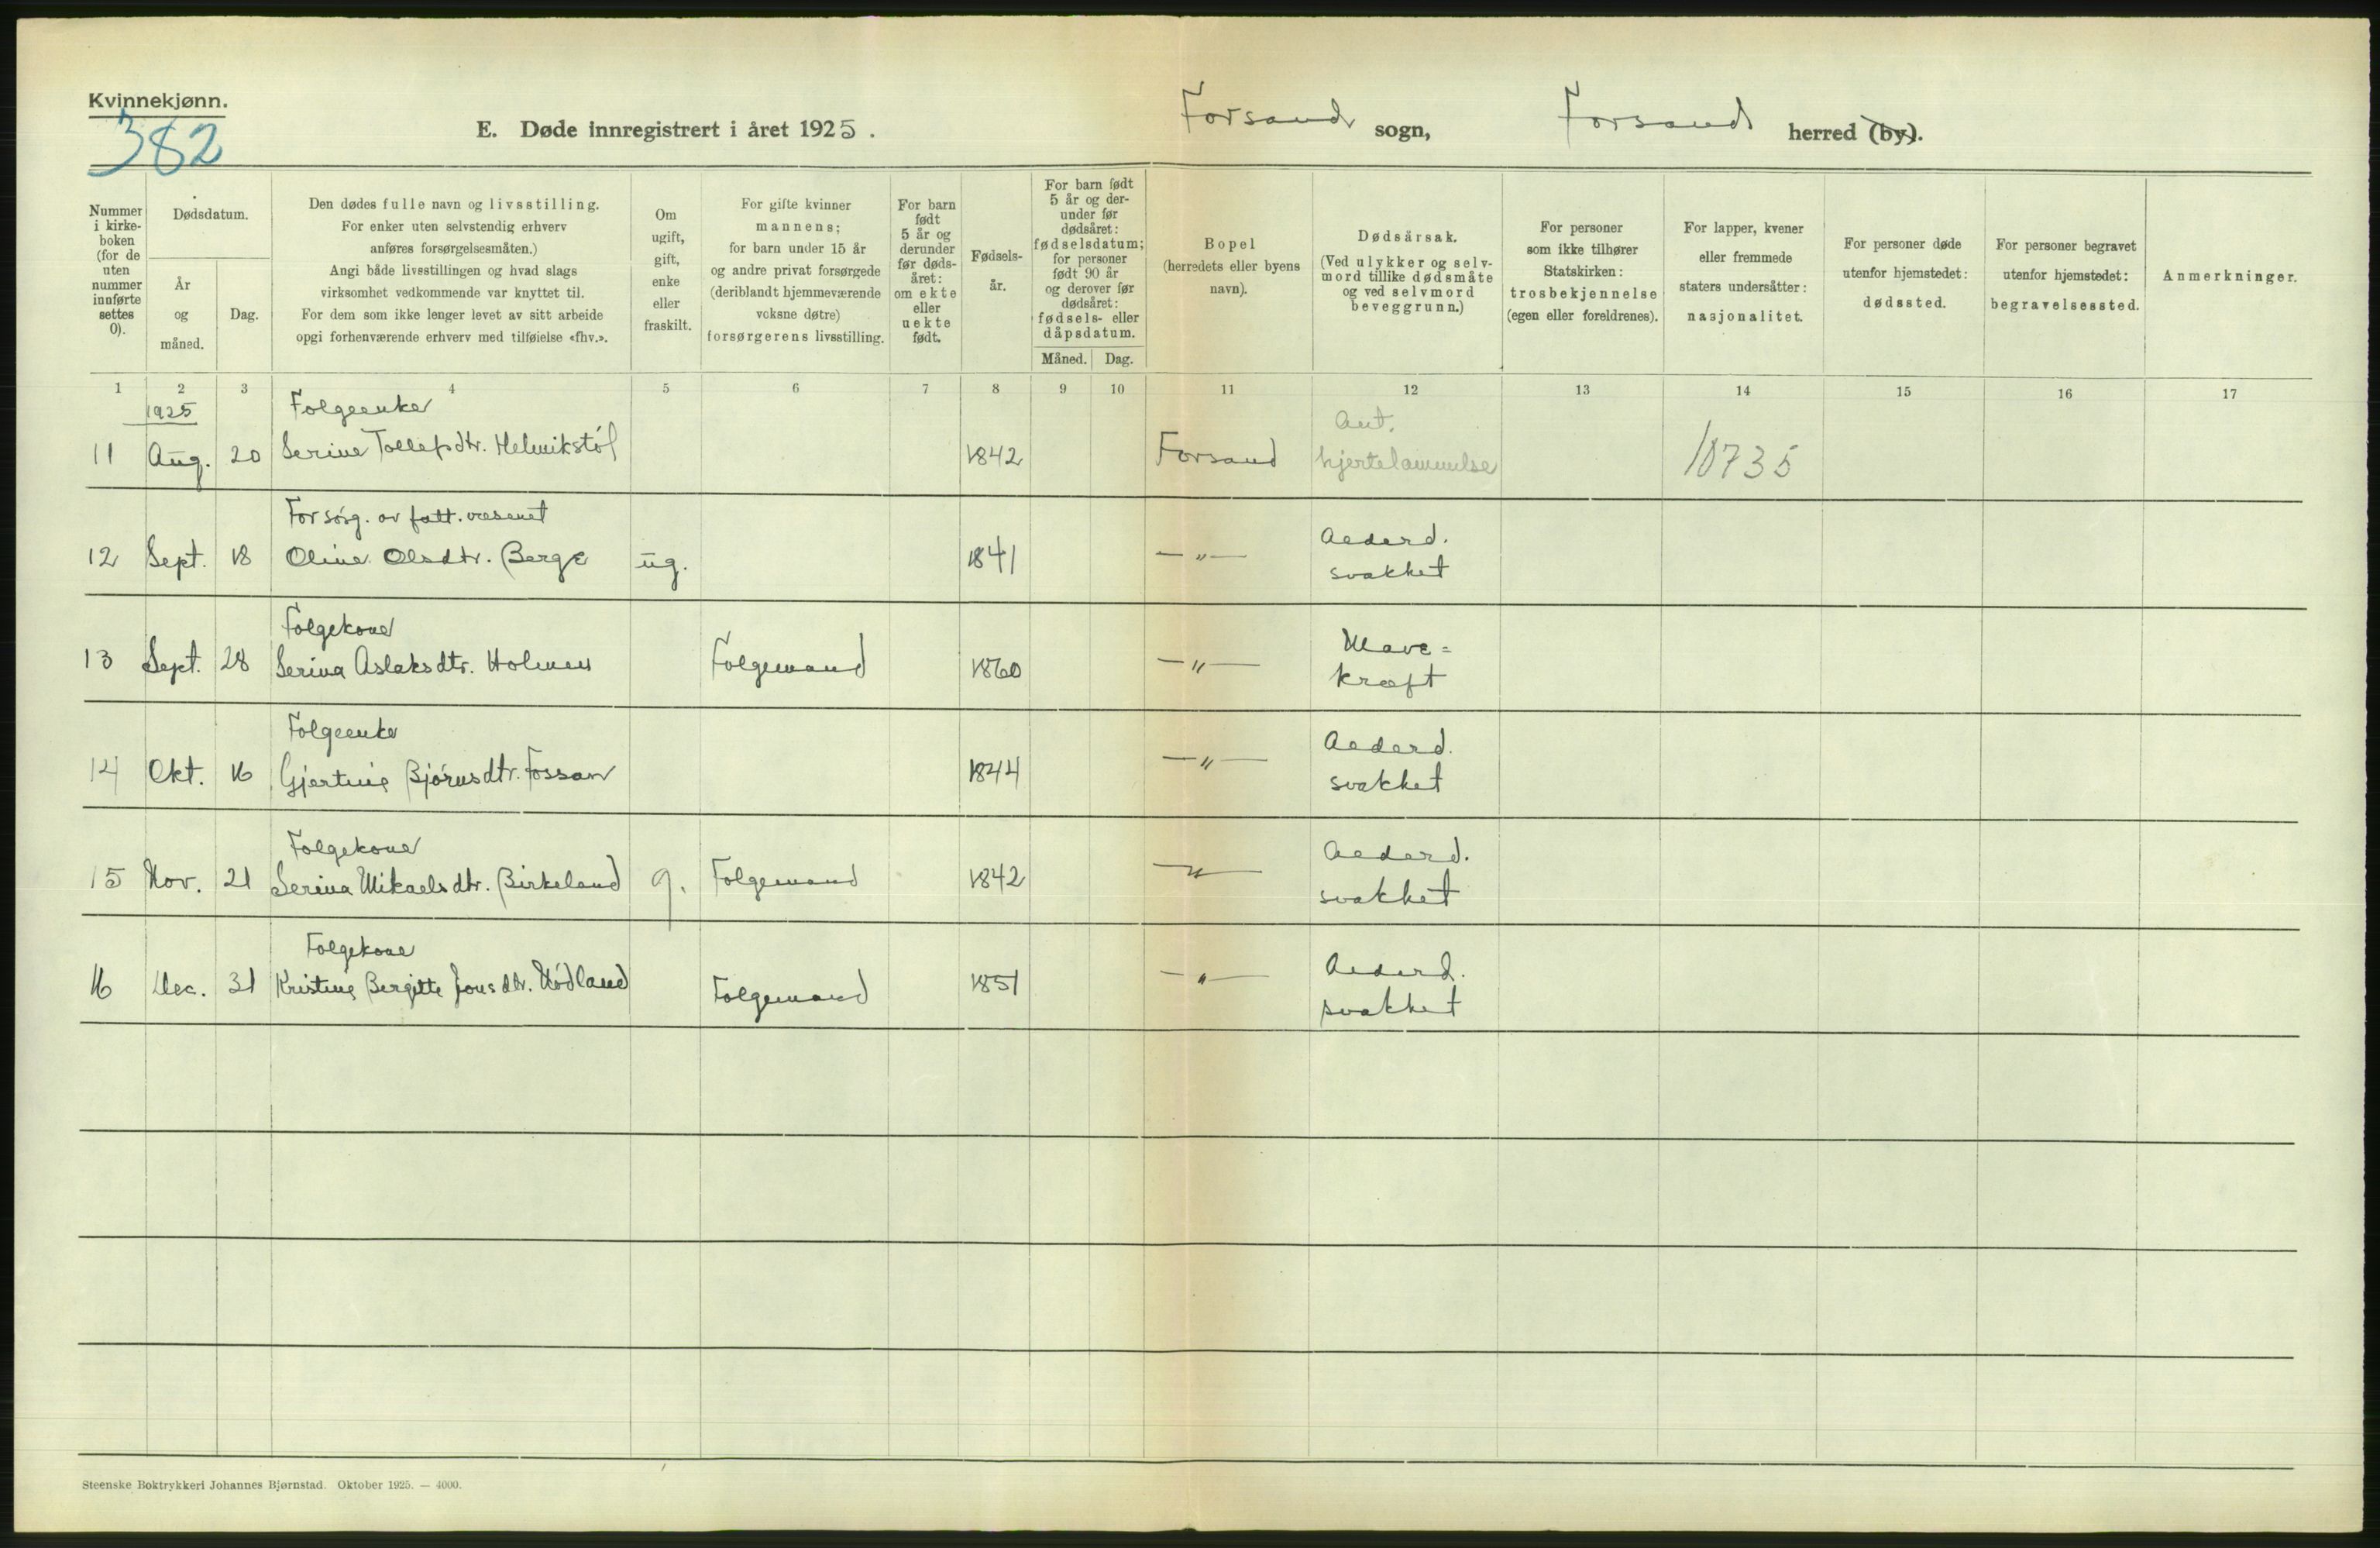 Kvinnekjønn.
382
E. Døde innregistrert i året 1925.
Forsand sogn, Forsand herred (by).
Nummer i kirke-boken (for de uten nummer innførte settes 0).
Dødsdatum.
År og måned.
Dag.
Den dødes fulle navn og livsstilling.
For enker uten selvstendig erhverv
anføres forsørgelsesmåten.)
Angi både livsstillingen og hvad slags
virksomhet vedkommende var knyttet til.
For dem som ikke lenger levet av sitt arbeide
opgi forhenværende erhverv med tilføielse «fhv.».
Om ugift, gift, enke eller fraskilt.
For gifte kvinner
mannens;
for barn under 15 år
og andre privat forsørgede
(deriblandt hjemmeværende
voksne døtre)
forsørgerens livsstilling.
For barn født 5 år og derunder før døds-året: om ekte eller uekte født.
Fødsels-år.
For barn født 5 år og der-under før dødsåret: fødselsdatum; for personer født 90 år og derover før dødsåret: fødsels- eller dåpsdatum.
Måned. Dag.
Bopel
(herredets eller byens
navn).
Dødsårsak.
(Ved ulykker og selv-
mord tillike dødsmåte
og ved selvmord
beveggrunn.)
For personer
som ikke tilhører
Statskirken:
trosbekjennelse
(egen eller foreldrenes).
For lapper, kvener
eller fremmede
staters undersåtter:
nasjonalitet.
For personer døde
utenfor hjemstedet:
dødssted.
For personer begravet
utenfor hjemstedet:
begravelsessted.
Anmerkninger.
1 2 3 4 5 6 7 8 9 10 11 12 13 14 15 16 17
1925 Folgeenke Ant.
11 Aug. 20 Serine Tollefsdtr. Helmikstøl 1842 Forsand hjertelammelse 10735
Forsørg. av fatt.væsenet Alderd.
12 Sept. 18 Oline Olsdtr. Berge ug. 1841 —„— svakhet
Folgekone Mave=
13 Sept. 28 Serina Aslaksdtr. Holmen Folgemand 1860 —„— kræft
Folgeenke Alderd.
14 Okt. 16 Gjertine Bjørnsdtr. Fossan 1844 —„— svakhet
Folgekone Alderd.
15 Nov. 21 Serina Mikaelsdtr. Birkeland g. Folgemand 1842 —„— svakhet
Folgekone Alderd.
16 Dec. 31 Kristine Bergitte Jonsdtr. Hødland Folgemand 1851 —„— svakhet
Steenske Boktrykkeri Johannes Bjørnstad. Oktober 1925. — 4000.